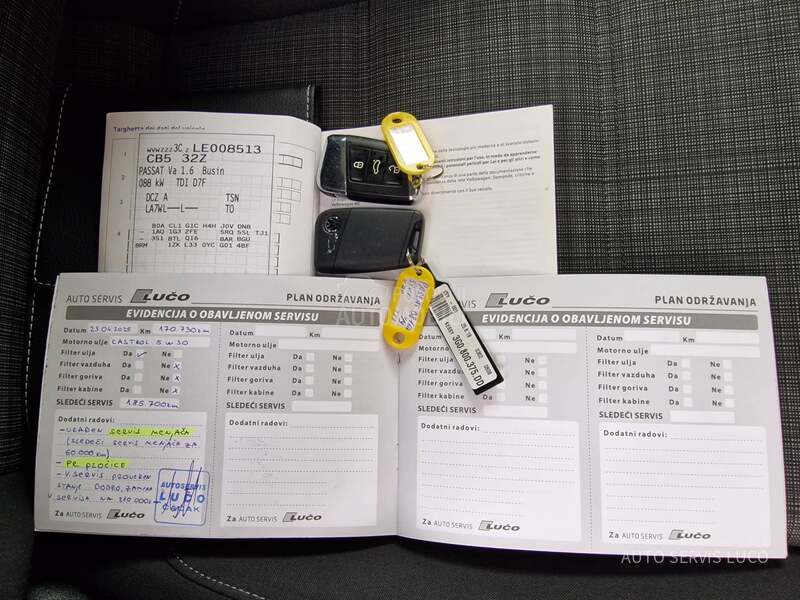 Targhetta dei dati del veicolo
WVWZZZ3C Z LE008513
CB5 32Z
PASSAT Va 1.6 Busin
088 kW TDI D7F
DCZ A TSN
LA7W TO
B0A CL1 G1C H4H J0V DN8
1AQ 1G3 2FE 5RQ 5SL TJ1
3S1 8TL QI6 8AR 8GU
8RM 1ZK L33 0YC G01 4BF
3G0.800.375.DD
AUTO SERVIS LUČO PLAN ODRŽAVANJA
EVIDENCIJA O OBAVLJENOM SERVISU
Datum 23.04.2025 Km 170.730 km
Motorno ulje CASTROL 5W30
Filter ulja Da ✓ Ne
Filter vazduha Da Ne x
Filter goriva Da Ne x
Filter kabine Da Ne x
SLEDEĆI SERVIS 185.700 km
Dodatni radovi:
- URAĐEN SERVIS MENJAČA
(SLEDEĆI SERVIS MENJAČA ZA
60.000 km)
- PR. PLOČICE
- V. SERVIS PROVEREN
STANJE DOBRO, ZAMENA
V. SERVISA NA 210.000
AUTOSERVIS
LUČO
ČAČAK
Za AUTO SERVIS LUČO
Datum
Km
Motorno ulje
Filter ulja Da Ne
Filter vazduha Da Ne
Filter goriva Da Ne
Filter kabine Da Ne
SLEDEĆI SERVIS
Dodatni radovi:
Za AUTO SERVIS LUČO
SERVIS LUČO PLAN ODRŽAVANJA
EVIDENCIJA O OBAVLJENOM SERVISU
Km
Motorno ulje
Filter ulja Da Ne
Filter vazduha Da Ne
Filter goriva Da Ne
Filter kabine Da Ne
SLEDEĆI SERVIS
Dodatni radovi:
Za AUTO SERVIS LUČO
Datum
Km
Motorno ulje
Filter ulja Da Ne
Filter vazduha Da Ne
Filter goriva Da Ne
Filter kabine Da Ne
SLEDEĆI SERVIS
Dodatni radovi:
Za AUTO SERVIS LUČO
AUTO SERVIS LUCO